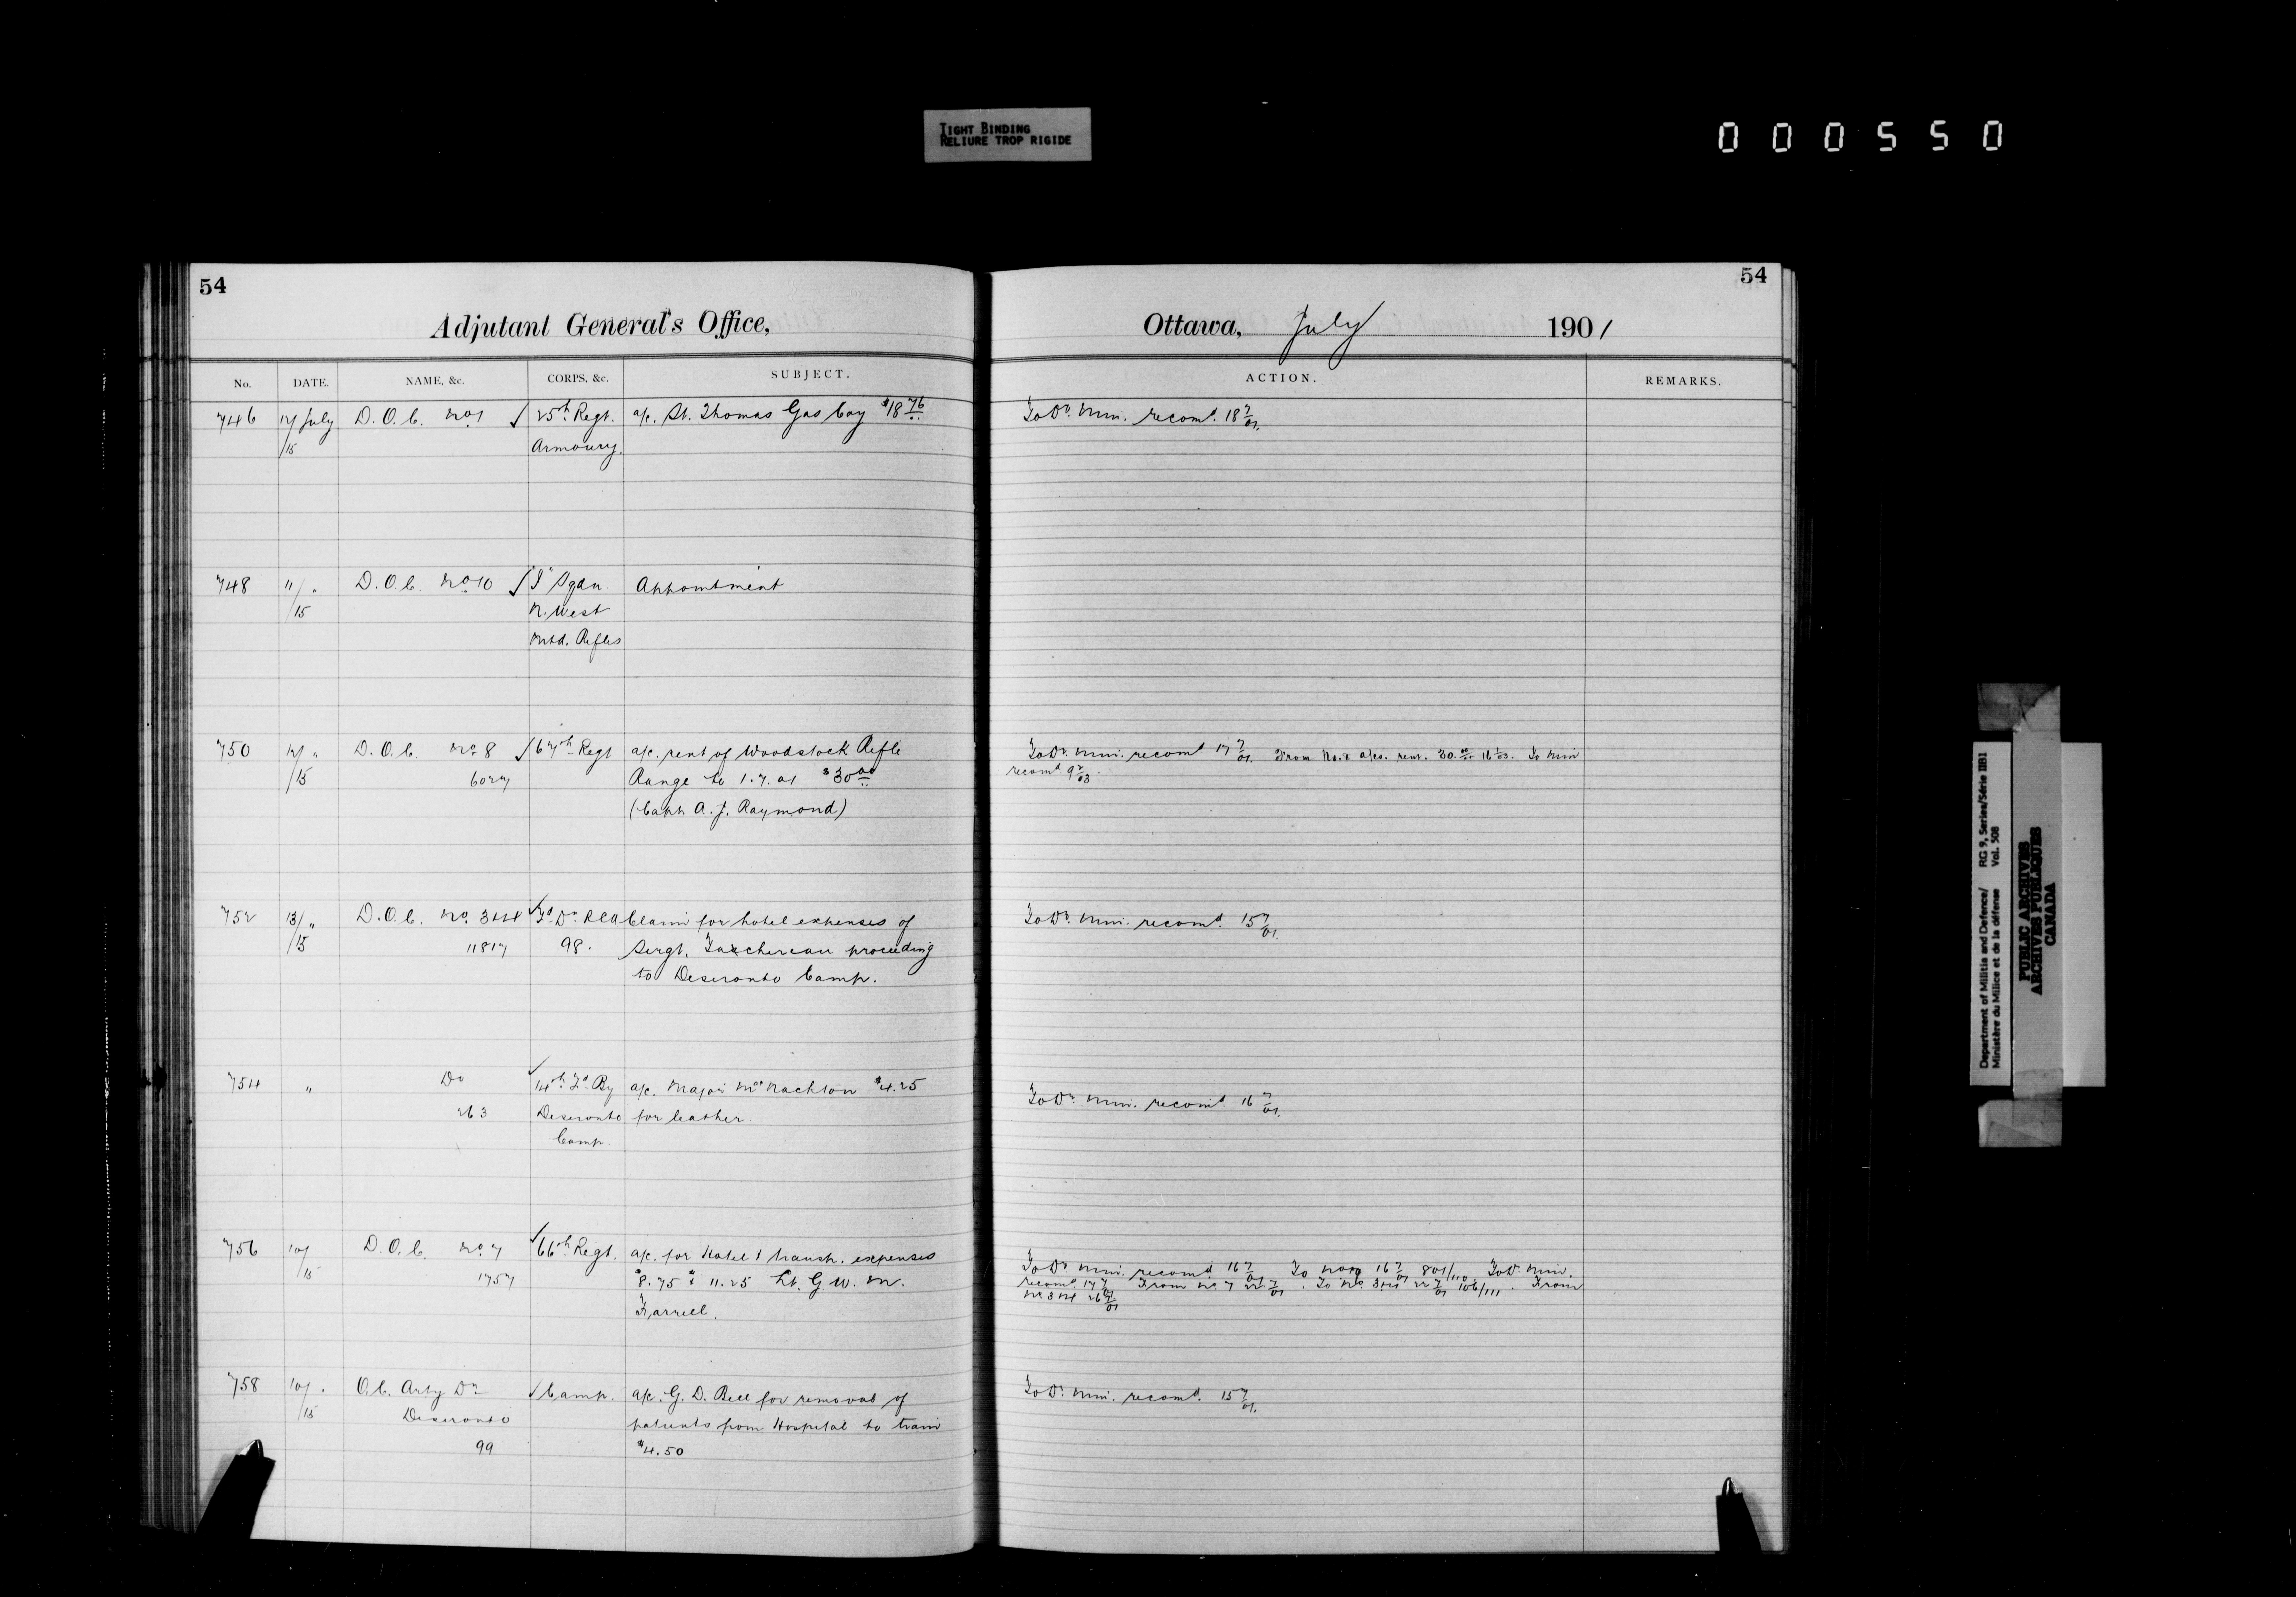 TIGHT BINDING
RELIURE TROP RIGIDE
000550
54
Adjutant General's Office,
No. DATE. NAME, &c. CORPS, &c. SUBJECT.
746 12/ July D.O.C. No 1 ✓ 25th Regt. a/c. St. Thomas Gas Coy $18.76
/15 Armoury.
748 11/ " D.O.C. No 10 ✓ Sqdn. Appointment
/15 N. West
Mtd. Rifles
750 12/ " D.O.C. No. 8 ✓ 67th Regt a/c. rent of Woodstock Rifle
/15 6027 Range to 1.7.01 $30.00
(Capt A. J. Raymond)
752 13/ " D.O.C. No. 3&4 ✓ Fd Dn RCA Claim for hotel expenses of
/15 11817 98. Sergt. Taschereau proceeding
to Deseronto Camp.
754 " Do ✓ 14th Fd By a/c. Major McNachton $4.25
263 Deseronto for leather.
Camp.
756 10/ D.O.C. No. 7 ✓ 66th Regt. a/c. for Hotel & transp. expenses
/15 1757 $8.75 & 11.25 Lt. G. W. M.
Farrell.
758 10/ " O.C. Arty Dn ✓ Camp. a/c. G. D. Bell for removal of
/15 Deseronto patients from Hospital to train
99 $4.50
54
Ottawa, July 1901
ACTION. REMARKS.
To Dr. Min. recomd. 18 7/01.
To Dr. Min. recomd 17 7/01. From No. 8 a/cs. rent. 30.00 16 1/03. To Min
recomd 9 2/03.
To Dr. Min. recomd. 15 7/01.
To Dr. Min. recomd. 16 7/01.
To Dr. Min. recomd. 16 7/01 To No 7 16 7/01 801/110. To D. Min.
recomd. 17 7/01 From No. 7 22 7/01. To No. 3&4 22 7/01 106/111. From
No. 3&4 26 7/01
To Dr. Min. recomd. 15 7/01.
Department of Militia and Defence/ RG 9, Series/Série IIB1
Ministère du Milice et de la défense Vol. 508
PUBLIC ARCHIVES
ARCHIVES PUBLIQUES
CANADA